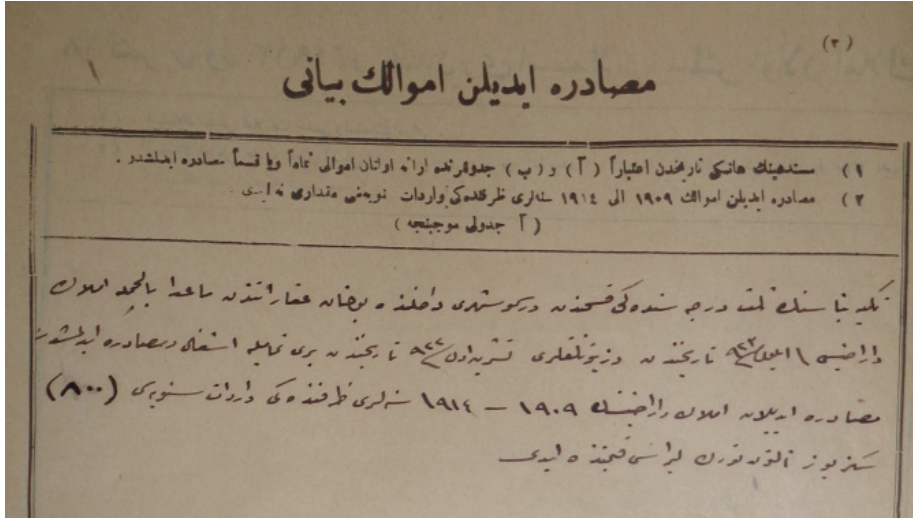 (٢)
مصادره ايديلن اموالك بيانى
١) مستدعينك هانكى تاريخدن اعتباراً ( آ ) و ( ب ) جدوللرنده ارائه اولنان اموالى تماماً ويا قسماً مصادره ايدلمشدر .
٢) مصادره ايديلن اموالك ١٩٠٩ الى ١٩١٤ سنه‌لرى ظرفنده‌كى واردات سنويه‌سى مقدارى نه ايدى
( آ جدولى موجبنجه )
ثلث درجه سنده‌كى قسمندن شهرى داخلنده عقاراتندن ماعدا بالجمله املاك
و اراضيسى ١ ايلول ٩٢٣ تاريخندن و زيتونلقلرى تشرين اول ٩٢٢ تاريخندن برى تماميله اشغال و مصادره ايدلمشدر
مصادره ايديلان املاك و اراضينك ١٩٠٩ – ١٩١٤ سنه‌لرى ظرفنده‌كى واردات سنويه‌سى (٨٠٠)
سكز يوز آلتون تورك ليراسى قيمتنده ايدى